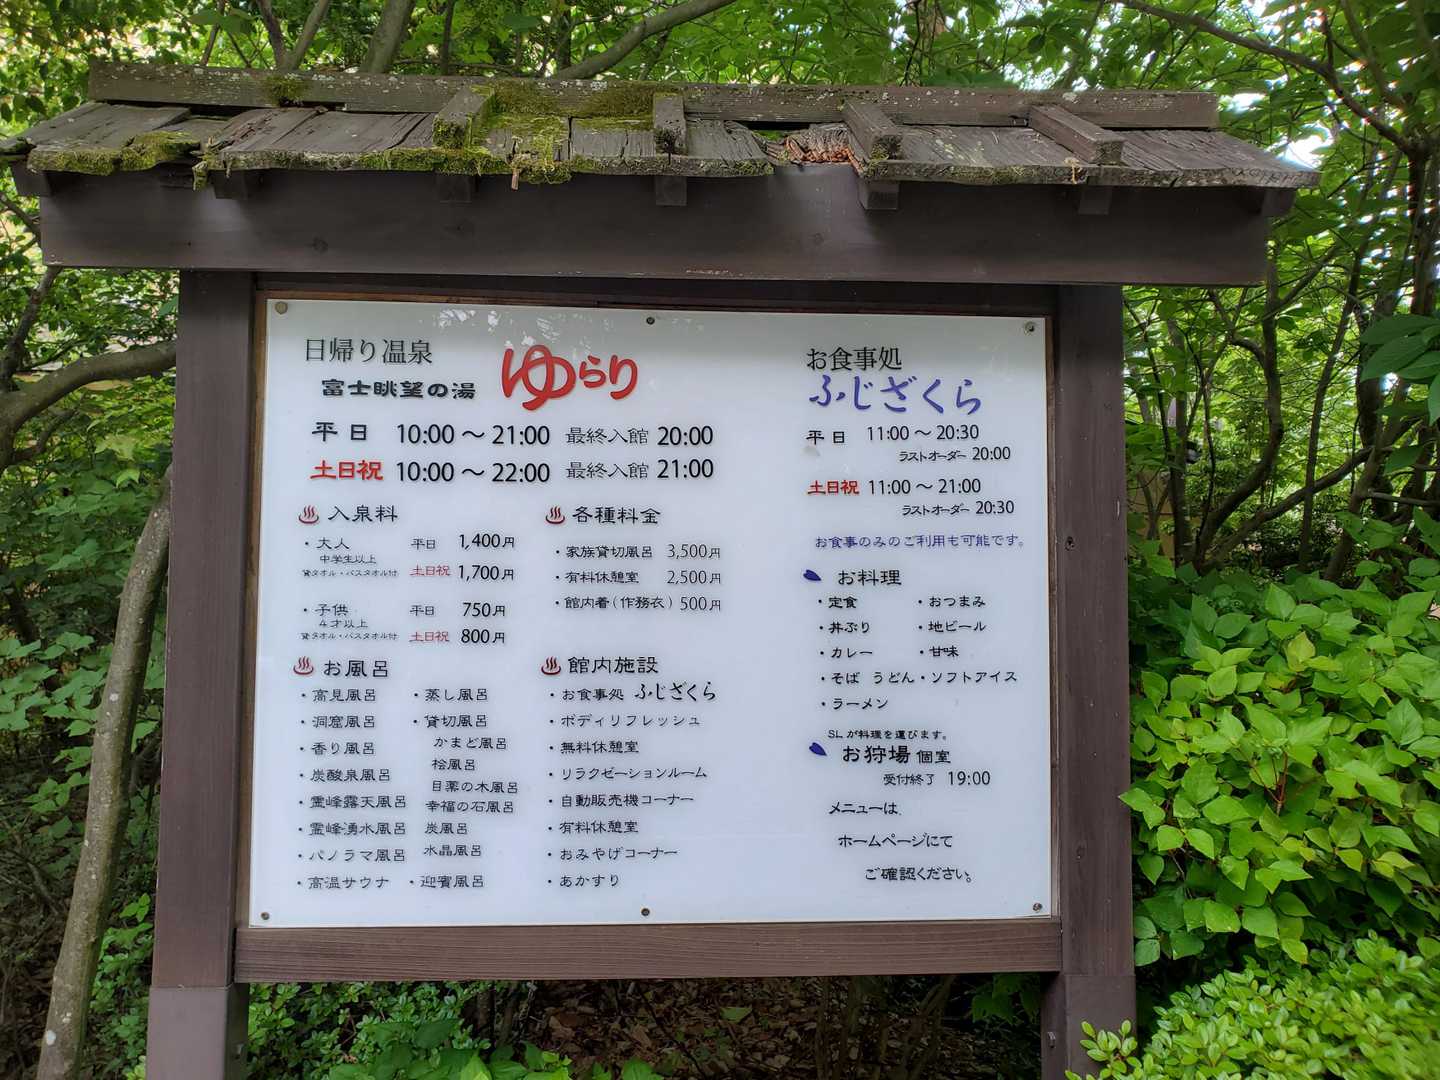 日帰り温泉
富士眺望の湯 ゆらり
平日 10:00 〜 21:00 最終入館 20:00
土日祝 10:00 〜 22:00 最終入館 21:00
入泉料
・大人 平日 1,400円
中学生以上
貸タオル・バスタオル付 土日祝 1,700円
・子供 平日 750円
4才以上
貸タオル・バスタオル付 土日祝 800円
各種料金
・家族貸切風呂 3,500円
・有料休憩室 2,500円
・館内着(作務衣) 500円
お風呂
・高見風呂
・洞窟風呂
・香り風呂
・炭酸泉風呂
・霊峰露天風呂
・霊峰湧水風呂
・パノラマ風呂
・高温サウナ
・蒸し風呂
・貸切風呂
かまど風呂
桧風呂
目薬の木風呂
幸福の石風呂
炭風呂
水晶風呂
・迎賓風呂
館内施設
・お食事処 ふじざくら
・ボディリフレッシュ
・無料休憩室
・リラクゼーションルーム
・自動販売機コーナー
・有料休憩室
・おみやげコーナー
・あかすり
お食事処
ふじざくら
平日 11:00 〜 20:30
ラストオーダー 20:00
土日祝 11:00 〜 21:00
ラストオーダー 20:30
お食事のみのご利用も可能です。
お料理
・定食 ・おつまみ
・丼ぶり ・地ビール
・カレー ・甘味
・そば うどん ・ソフトアイス
・ラーメン
SLが料理を運びます。
お狩場 個室
受付終了 19:00
メニューは、
ホームページにて
ご確認ください。